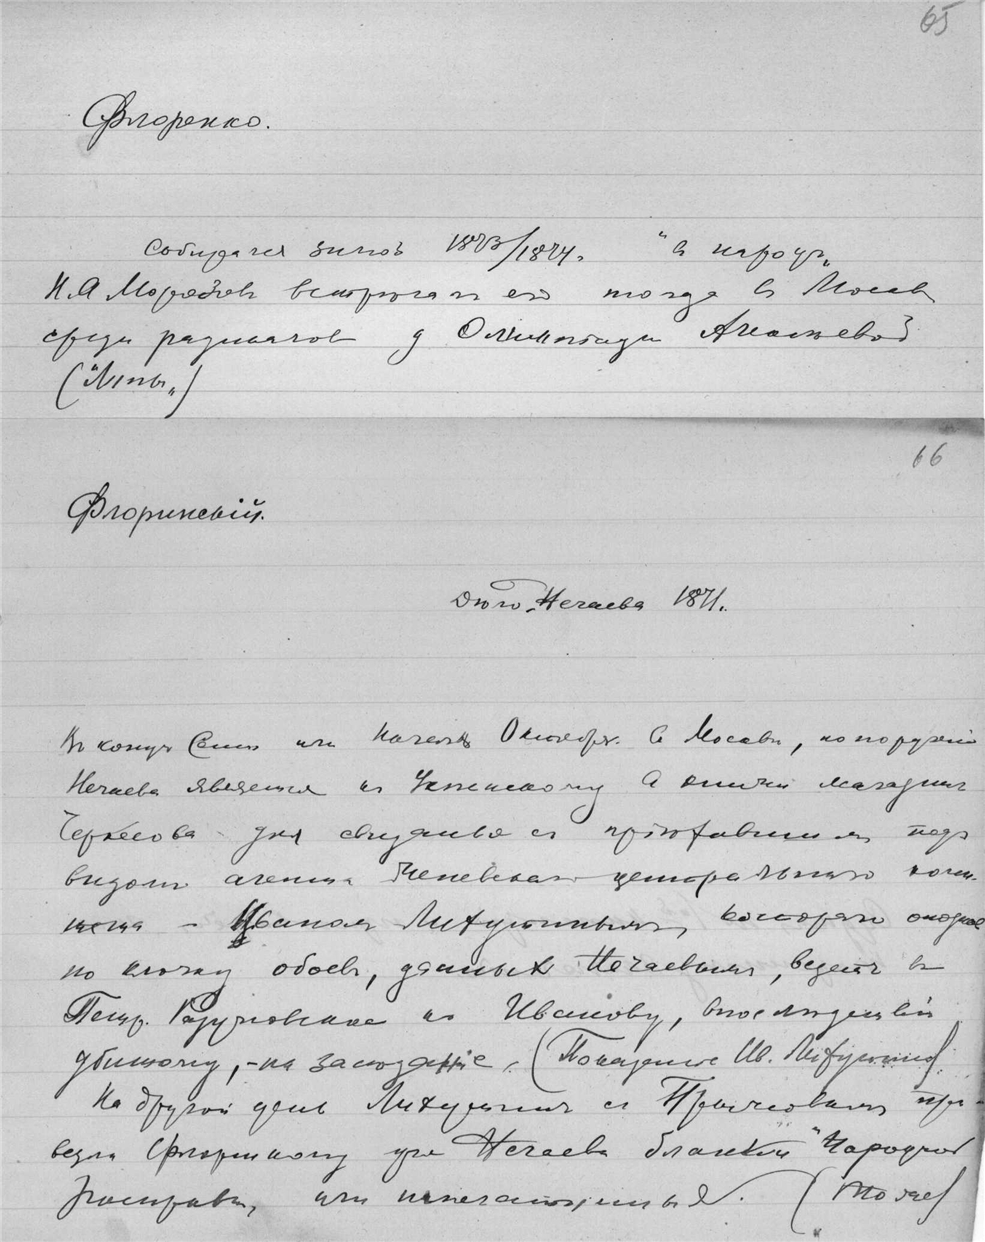 65
Флоренко.
Собирался зимой 1873/1874. "в народ„
Н.А Морозов встречал его тогда в Москв
среди радикалов у Олимпиады Алексеевой
("Липы„)
66
Флоринский.
Дѣло Нечаева 1871.
Въ концѣ Сент или началѣ Октября в Москвѣ, по порученію
Нечаева является къ Успенскому в книжн магазинъ
Черкесова для свиданія съ пріѣхавшимъ подъ
видомъ агента Женевскаго центральнаго коми-
тета – Иваном Лихутинымъ, котораго
по клочку обоевъ, данныхъ Нечаевымъ, ведетъ в
Петр. Разумовское къ Иванову, впослѣдствіи
убитому, – на засѣданіе. (Показаніе Ив. Лихутина)
На другой день Лихутинъ съ Прыжовымъ при-
везли Флоринскому для Нечаева бланки "Народной
Расправы, им напечатанные. (Тоже)